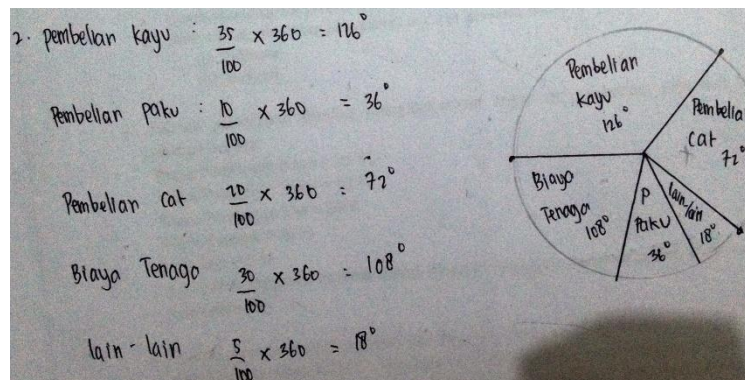 2. Pembelian kayu : 35/100 × 360 = 126°
Pembelian paku : 10/100 × 360 = 36°
Pembelian Cat 20/100 × 360 = 72°
Biaya Tenaga 30/100 × 360 = 108°
lain - lain 5/100 × 360 = 18°
Pembelian
kayu
126°
Pembelia
Cat
72°
Biaya
Tenaga
108°
P
Paku
36°
lain-lain
18°